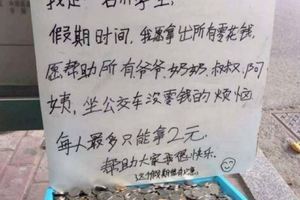 我是一名小学生
假期时间，我愿拿出所有零花钱，
愿帮助所有爷爷、奶奶、叔叔、阿
姨，坐公交车没零钱的烦恼
每人最多只能拿2元.
帮助大家我很快乐.